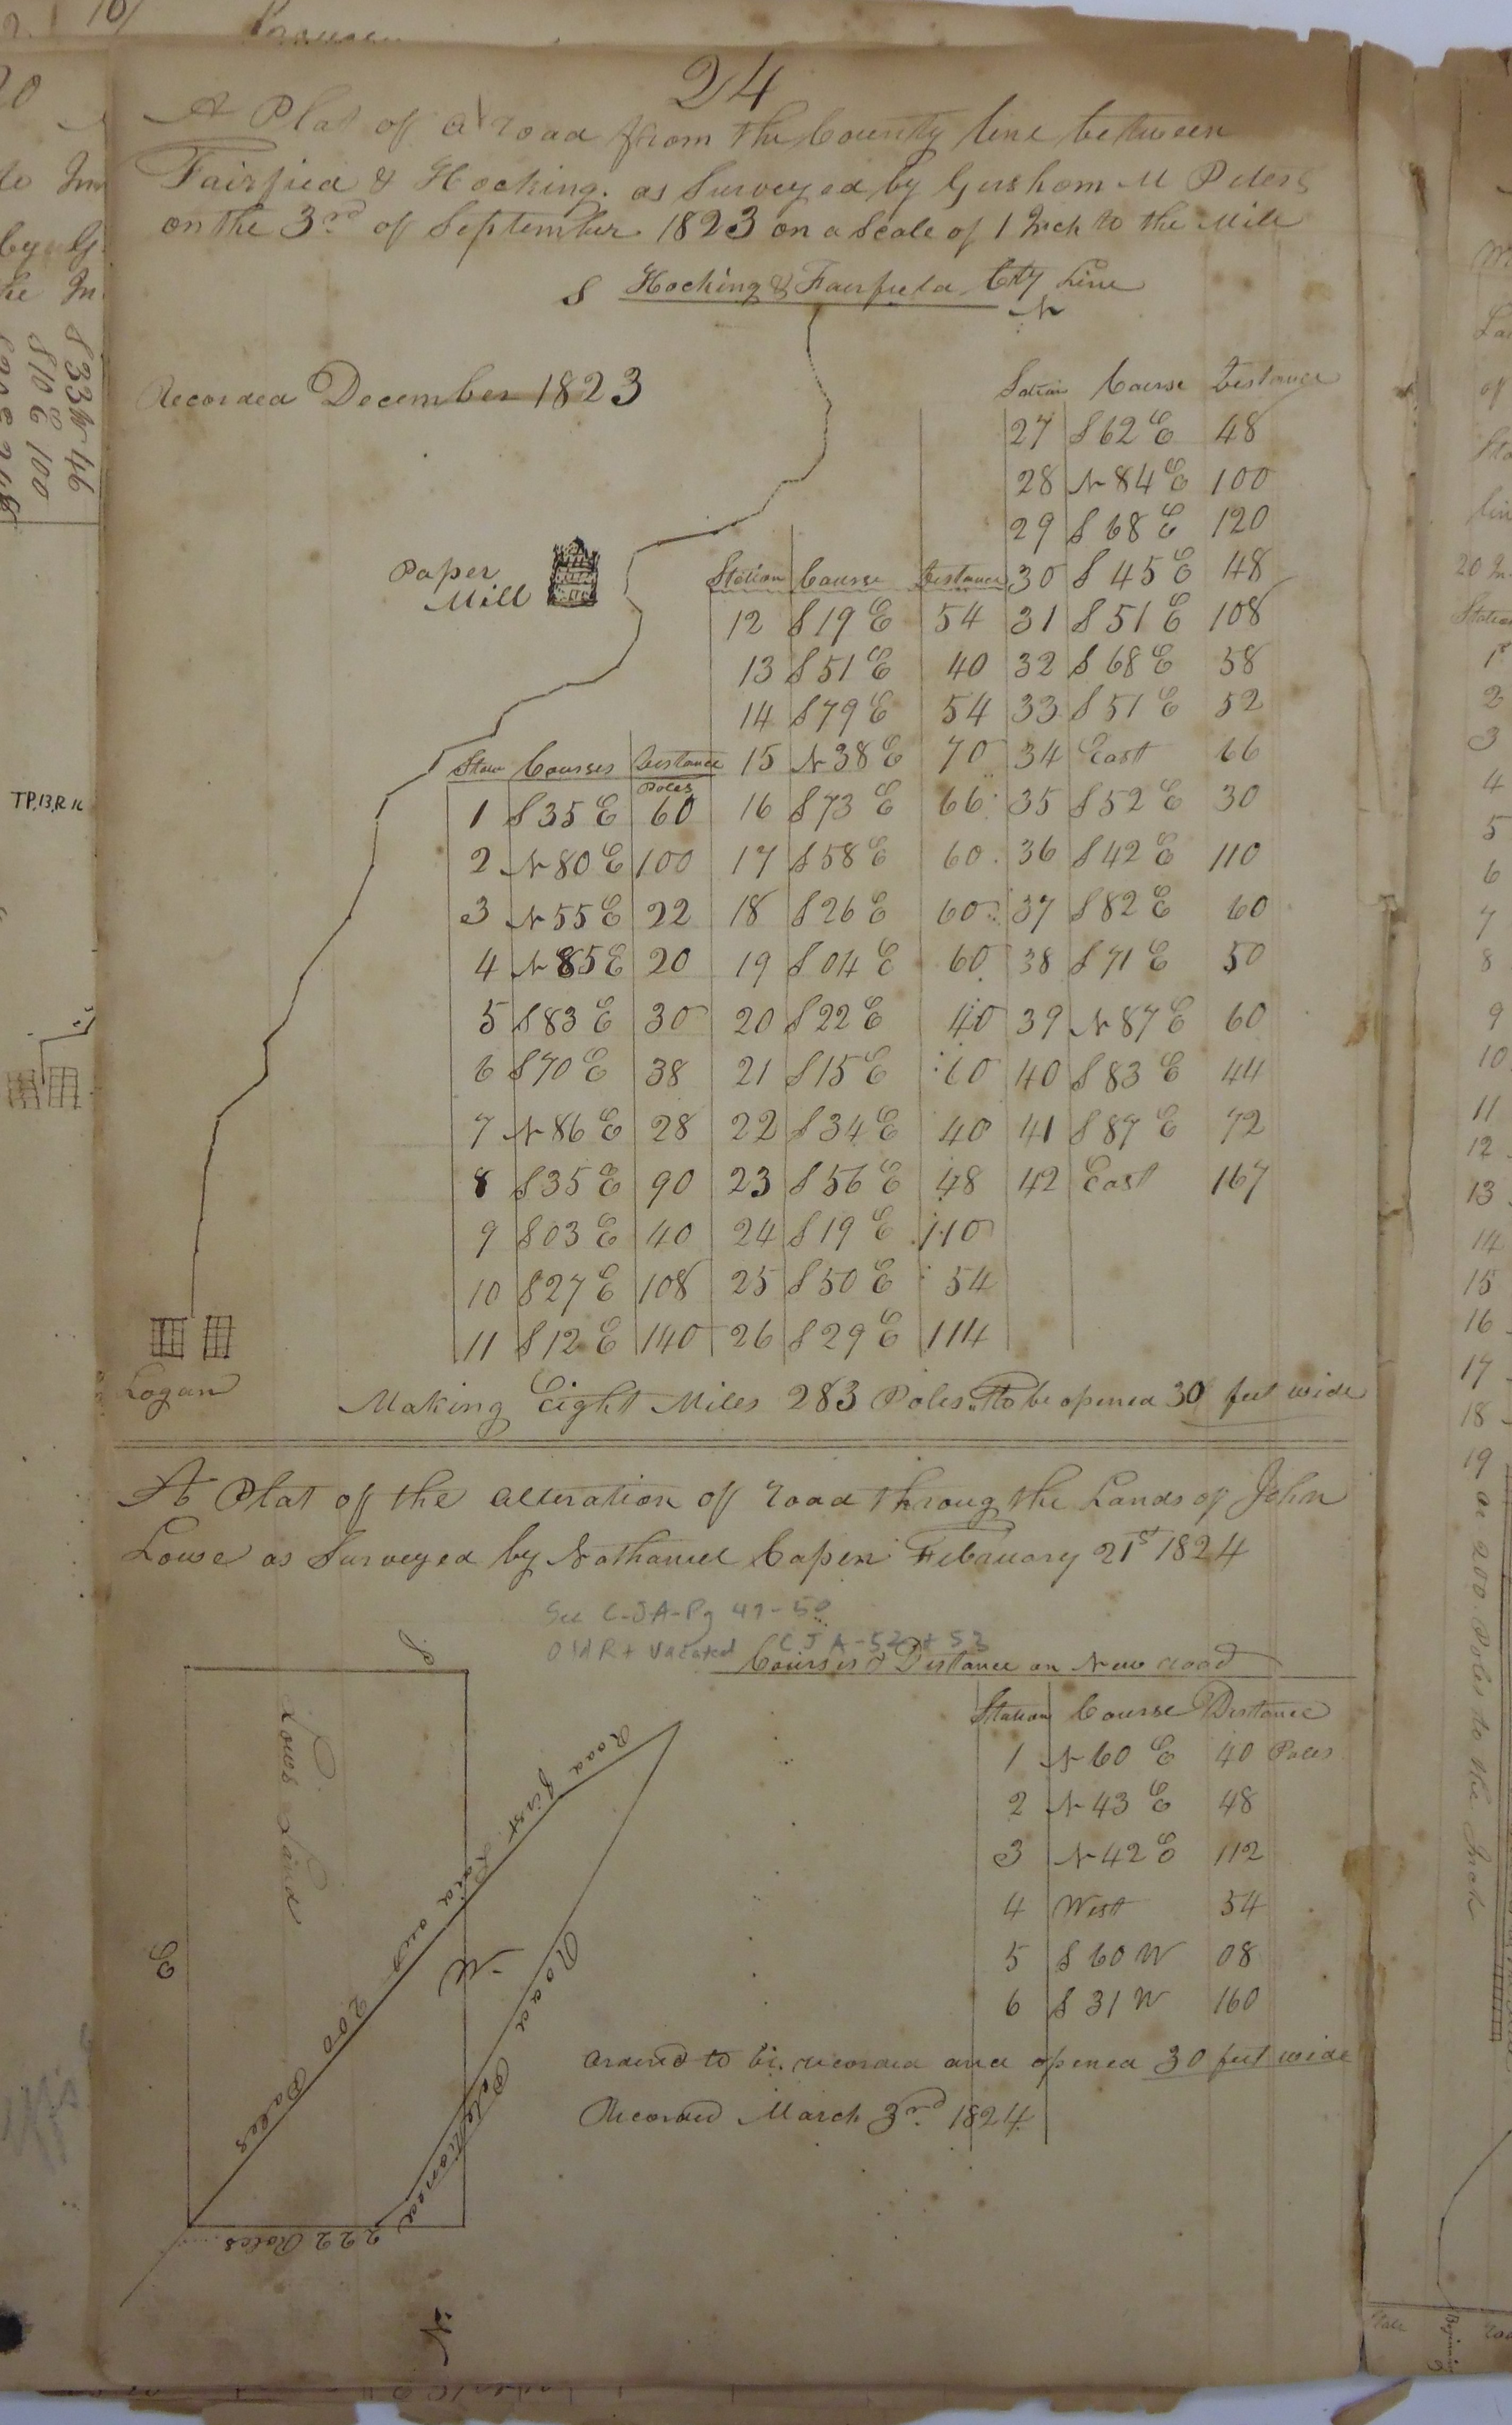 24
A Plat of a road from the County line between
Fairfied & Hocking. as Surveyed by Gershom M Peters
on the 3rd of September 1823 on a Scale of 1 Inch to the Mile
S Hocking & Fairfield Cty Line
N
Recorded December 1823
Paper
Mill
Logan
Staw Courses Distance
Poles
1 S 35 E 60
2 N 80 E 100
3 N 55 E 22
4 N 85 E 20
5 S 83 E 30
6 S 70 E 38
7 N 86 E 28
8 S 35 E 90
9 S 03 E 40
10 S 27 E 108
11 S 12 E 140
Station Course Distance
12 S 19 E 54
13 S 51 E 40
14 S 79 E 54
15 N 38 E 70
16 S 73 E 66
17 S 58 E 60
18 S 26 E 60
19 S 04 E 60
20 S 22 E 40
21 S 15 E 60
22 S 34 E 40
23 S 56 E 48
24 S 19 E 110
25 S 50 E 54
26 S 29 E 114
Station Course Distance
27 S 62 E 48
28 N 84 E 100
29 S 68 E 120
30 S 45 E 48
31 S 51 E 108
32 S 68 E 38
33 S 51 E 52
34 East 66
35 S 52 E 30
36 S 42 E 110
37 S 82 E 60
38 S 71 E 50
39 N 87 E 60
40 S 83 E 44
41 S 87 E 72
42 East 167
Making Eight Miles 283 Poles. to be opened 30 feet wide
A Plat of the alteration of road throug the Lands of John
Lowe as Surveyed by Nathaniel Capen Febauary 21st 1824
See C-J A-Pg 49-50
Old Rt Vacated C J A-52 + 53
Courses & Distance on New road
Station Course Distance
1 N 60 E 40 Poles
2 N 43 E 48
3 N 42 E 112
4 West 54
5 S 60 W 08
6 S 31 W 160
ordered to be recorded and opened 30 feet wide
Recorded March 3rd 1824
S
Lows Land
E
W
N
Road first Laid out
200 Poles
Road Petitioned
222 Poles
TP.13,R.16
S 33 W 46
S 10 E 100
19 at 200 Poles to the Inch